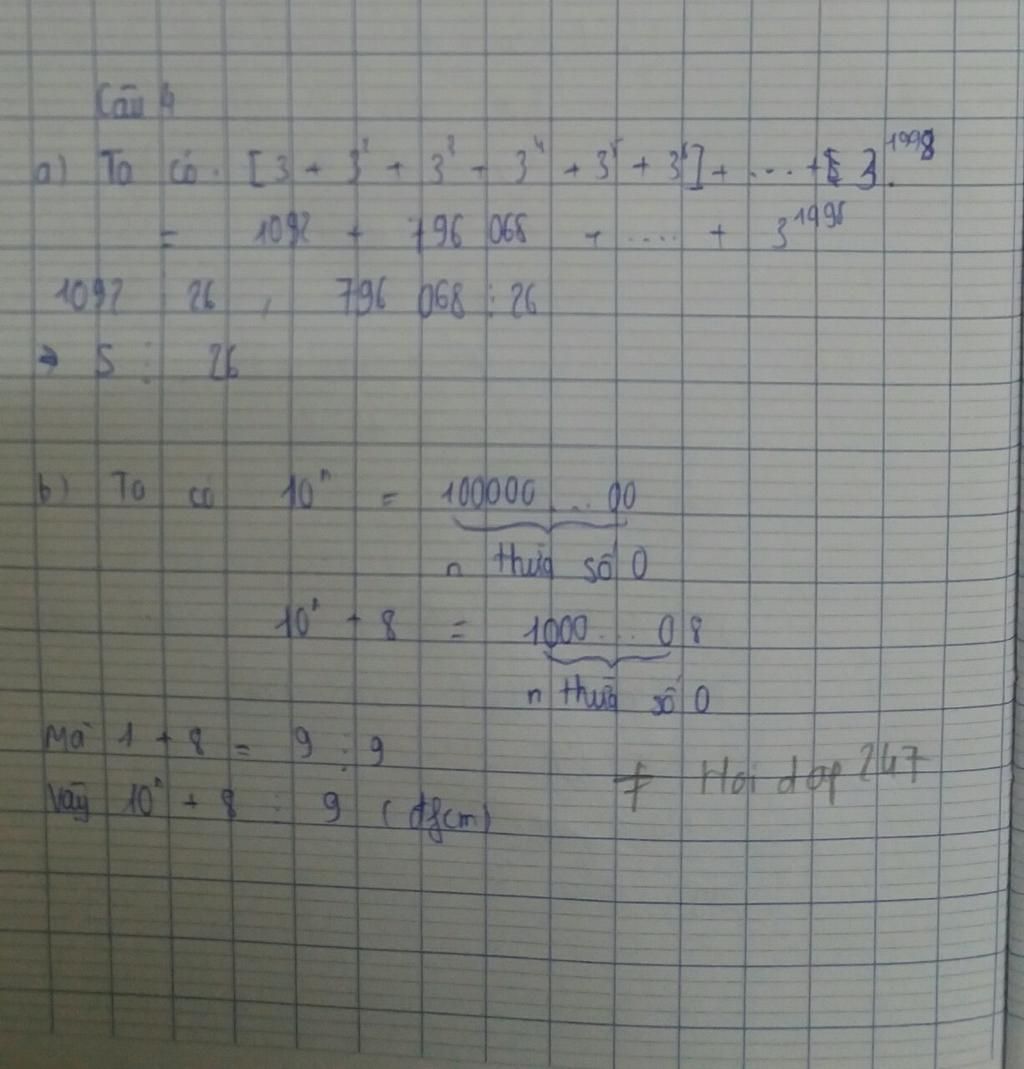 Câu 4
a) Ta có. [3 + 3² + 3³ + 3⁴ + 3⁵ + 3⁶] + .... + 3.¹⁹⁹⁸
= 1092 + 796 068 + .... + 3¹⁹⁹⁸
1092 26 , 796 068 : 26
→ S : 26
b) Ta có 10ⁿ = 100000...00
n thừa số 0
10ⁿ + 8 = 1000...08
n thừa số 0
Mà 1 + 8 = 9 : 9
Vậy 10ⁿ + 8 : 9 (đfcm)
# Hoi dap 247